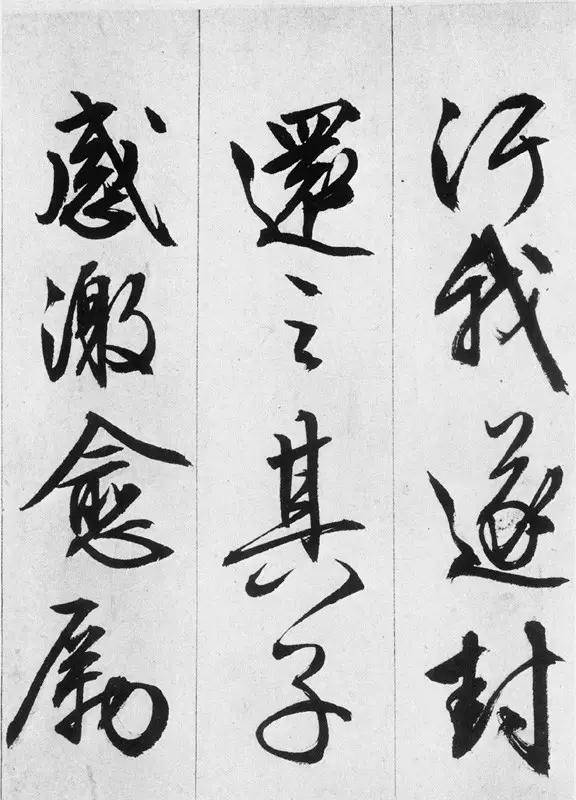 汙我遂封
還之其子
感激愈勵